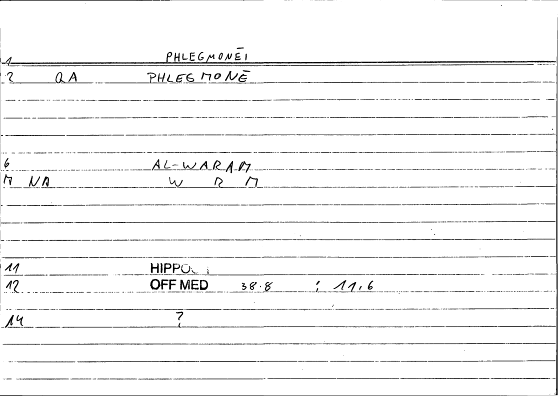 1 PHLEGMONĒI
2 QA PHLEGMONĒ
6 AL-WARAM
M NA W R M
11
12 OFF MED 38.8 : 11,6
14 ?